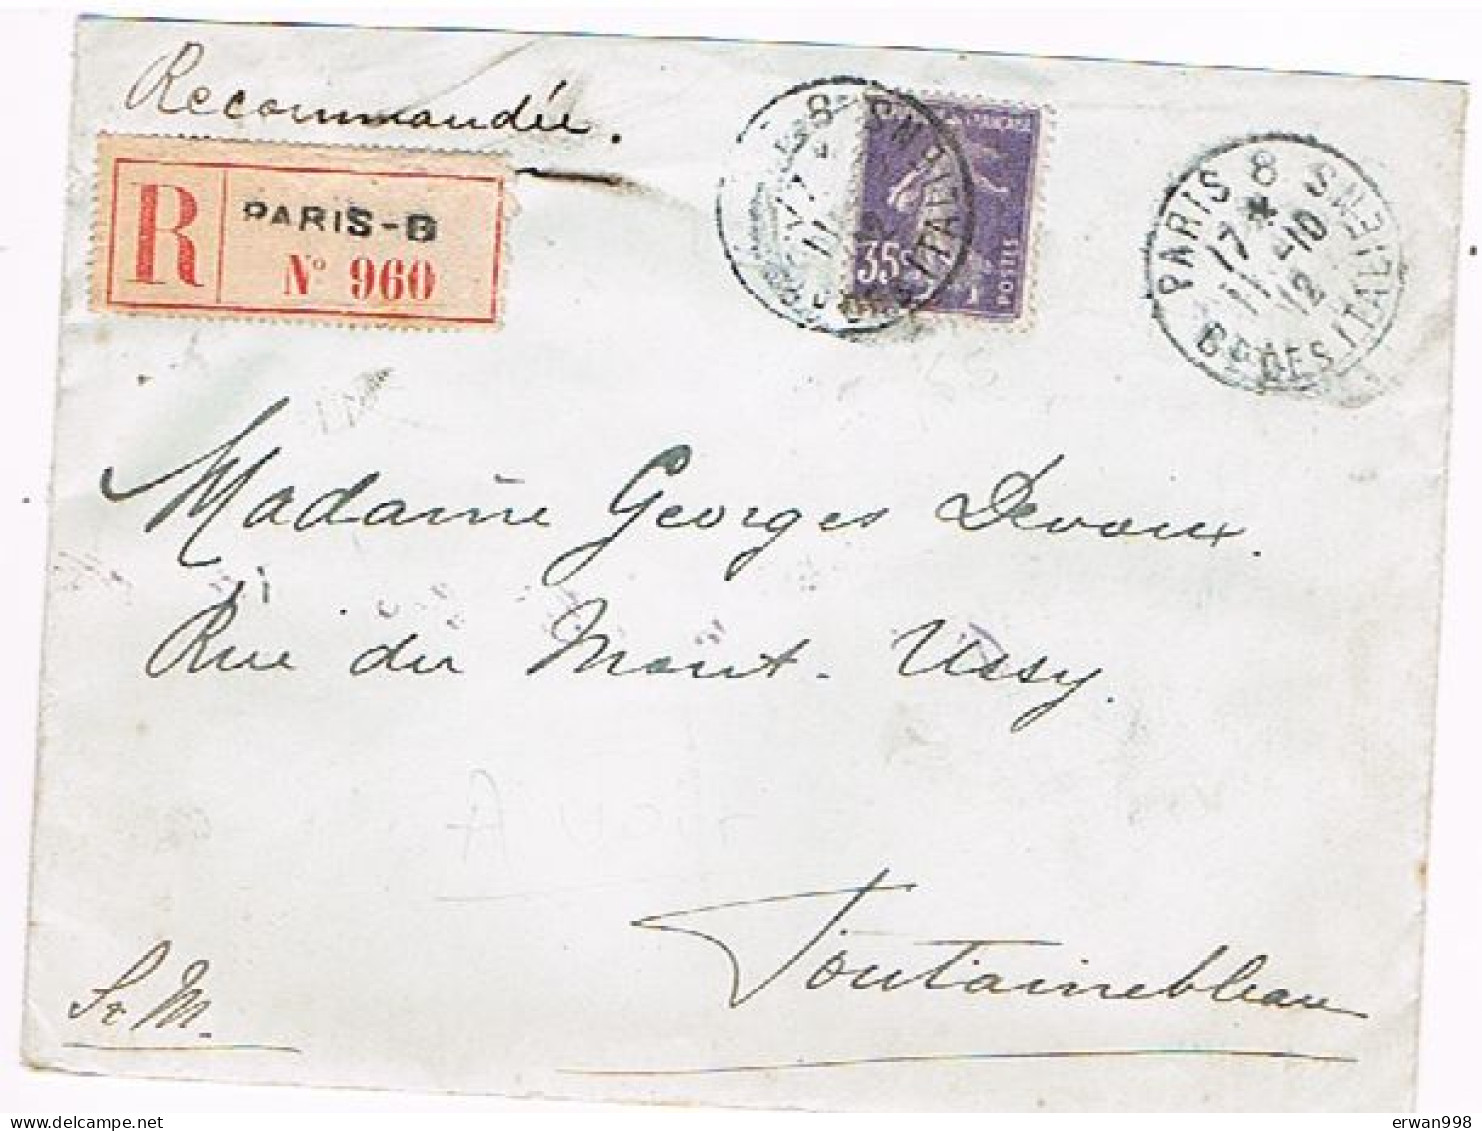 Recommandée.
R PARIS-B
N° 960
35c
POSTES
PARIS 8 Bd DES ITALIENS
17 * 10
11 12
Madame Georges Devaux.
Rue du Mont-Ussy.
A voir
Fontainebleau
S. et M.
erwan998